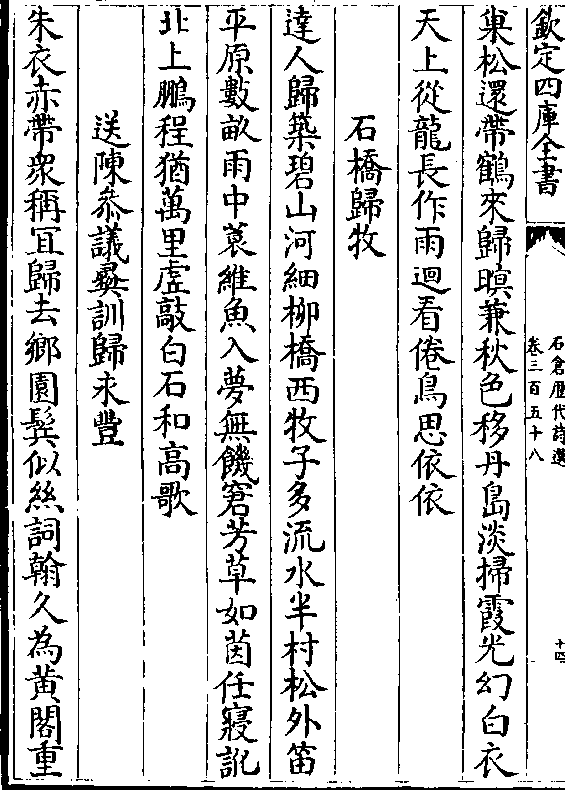 欽定四庫全書
石倉歷代詩選
卷三百五十八
十四
巢松還帶鶴來歸暝兼秋色移丹島淡掃霞光幻白衣
天上從龍長作雨迴看倦鳥思依依
石橋歸牧
達人歸築碧山河細柳橋西牧子多流水半村松外笛
平原數畝雨中蓑維魚入夢無饑窘芳草如茵任寢訛
北上鵬程猶萬里虛敲白石和高歌
送陳叅議彞訓歸永豐
朱衣赤帶衆稱宜歸去鄉園鬂似絲詞翰久為黃閣重